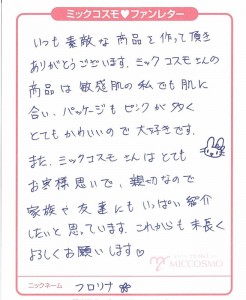 ミックコスモ♥ファンレター
いつも素敵な商品を作って頂き
ありがとうございます。ミックコスモさんの
商品は敏感肌の私でも肌に
合い、パッケージもピンクが多く
とてもかわいいので大好きです。
また、ミックコスモさんはとても
お客様思いで、親切なので
家族や友達にもいっぱい紹介
したいと思っています。これからも末長く
よろしくお願いします♡
MICCOSMO
ニックネーム フロリナ